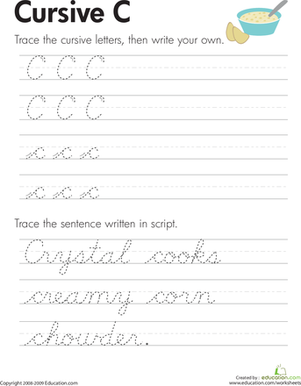 Cursive C
Trace the cursive letters, then write your own.
C C C
C C C
c c c
c c c
Trace the sentence written in script.
Crystal cooks
creamy corn
chowder.
Copyright 2008-2009 Education.com
Created by : education.com
www.education.com/worksheets